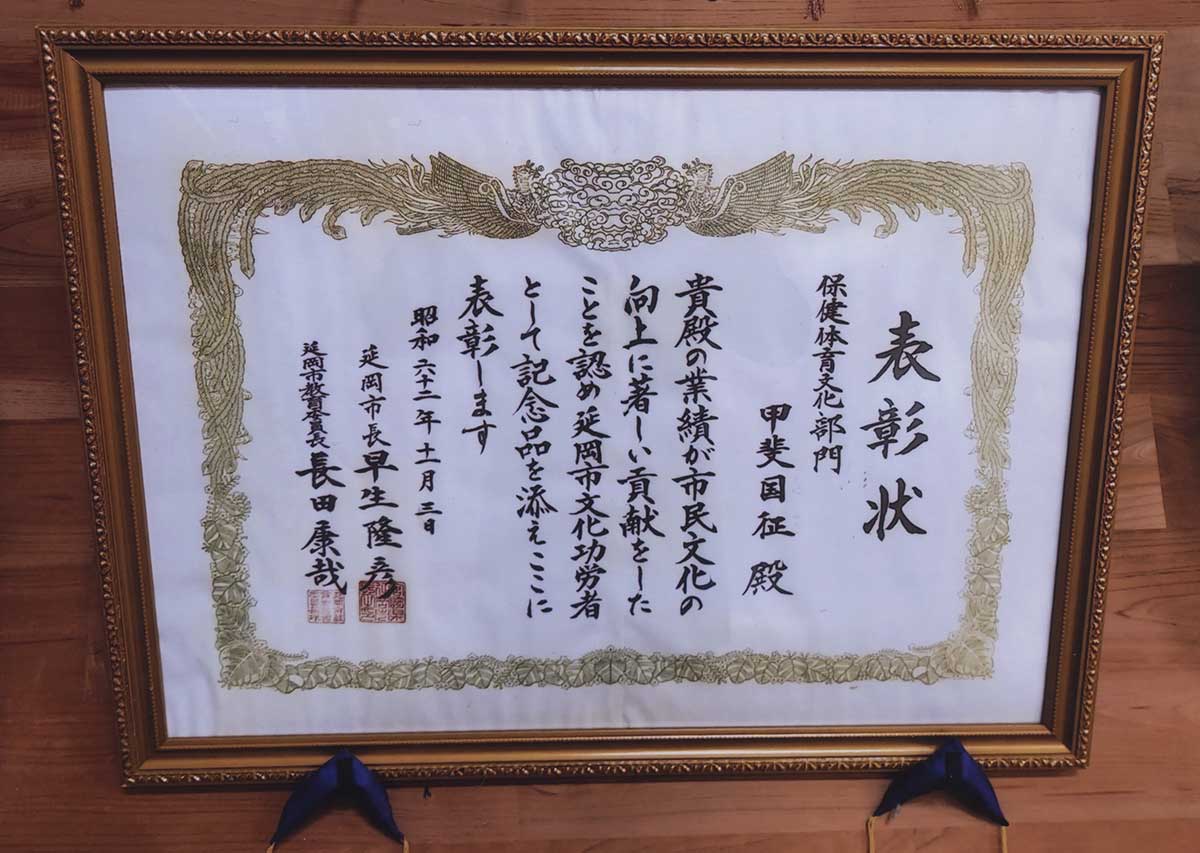 表彰状
保健体育文化部門
甲斐国征 殿
貴殿の業績が市民文化の
向上に著しい貢献をした
ことを認め延岡市文化功労者
として記念品を添えここに
表彰します
昭和六十二年十一月三日
延岡市長 早生隆彦
延岡市教育委員長 長田康哉